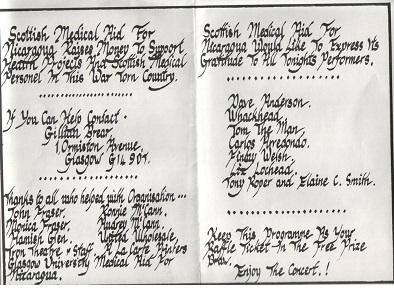 Scottish Medical Aid For
Nicaragua Raises Money To Support
Health Projects And Scottish Medical
Personel In This War Torn Country.
If You Can Help Contact -
Gillian Brear,
1 Ormiston Avenue,
Glasgow G14 9DT.
Thanks to all who helped with Organisation...
John Fraser, Ronnie M'Cann,
Monica Fraser, Audrey M'Cann,
Hamish Glen, United Wholesale,
Tron Theatre & Staff, A La Carte Printers
Glasgow University Medical Aid For
Nicaragua.
Scottish Medical Aid For
Nicaragua Would Like To Express Its
Gratitude To All Tonights Performers,
Dave Anderson,
Whackhead,
Tom The Man,
Carlos Arredondo,
Finlay Welsh,
Liz Lochead,
Tony Roper and Elaine C. Smith.
Keep This Programme As Your
Raffle Ticket In The Free Prize
Draw.
Enjoy The Concert.!